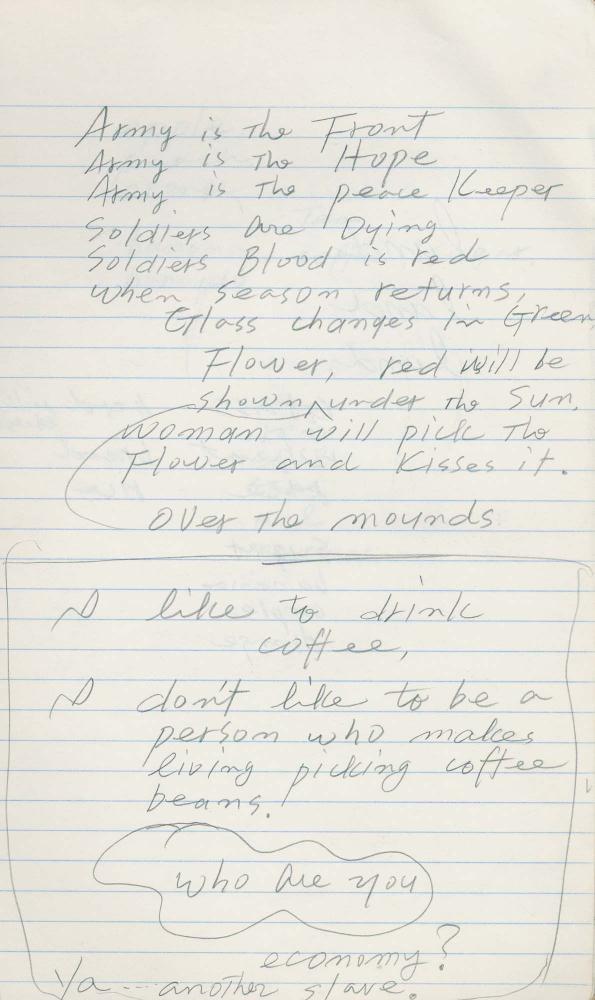 Army is the Front
Army is the Hope
Army is the peace Keeper
Soldiers are Dying
Soldiers Blood is red
when season returns,
Glass changes in Green
Flower, red will be
shown under the Sun.
woman will pick the
Flower and Kisses it.
Over the mounds
I like to drink
coffee,
I don't like to be a
person who makes
living picking coffee
beans.
who are you
economy?
Ya... another slave.